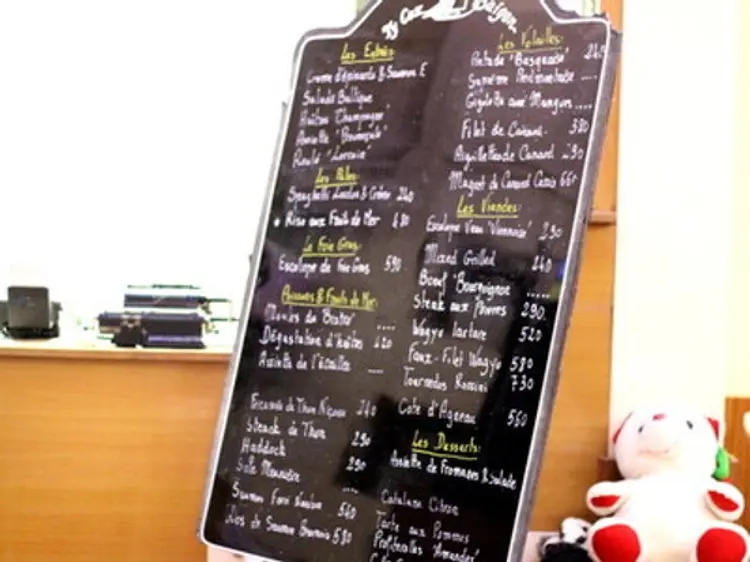 Ty Coz Saigon
Les Entrées
Crème d'épinards & Saumon F
Salade Baltique
Huîtres "Champagne"
Assiette
Roulé "Lorrain"
Les Pâtes
Spaghetti Lardon & Crème 240
* Riso aux Fruits de Mer 480
Le Foie Gras
Escalope de Foie Gras 590
Poissons & Fruits de Mer
Moules du
Dégustation d'Huîtres 420
Assiette de l'écailler
de Thon Niçoise 240
Steack de Thon 290
Haddock
Sole Meunière 290
Saumon 560
Dos de Saumon 580
Les Volailles
"Basquaise" 240
Suprême
aux Mangues
Filet de Canard 380
Aiguillettes de Canard 290
Magret de Canard Cassis 66
Les Viandes
Escalope Veau "Viennoise" 290
Mixed Grilled 240
Boeuf "Bourguignon"
Steak aux Poivres 290
Wagyu tartare 520
Faux-Filet Wagyu 580
Tournedos Rossini 730
Cote d'Agneau 560
Les Desserts:
Assiette de Fromages & Salade
Catalane Citron
Tarte aux Pommes
Profiteroles "Amandes"